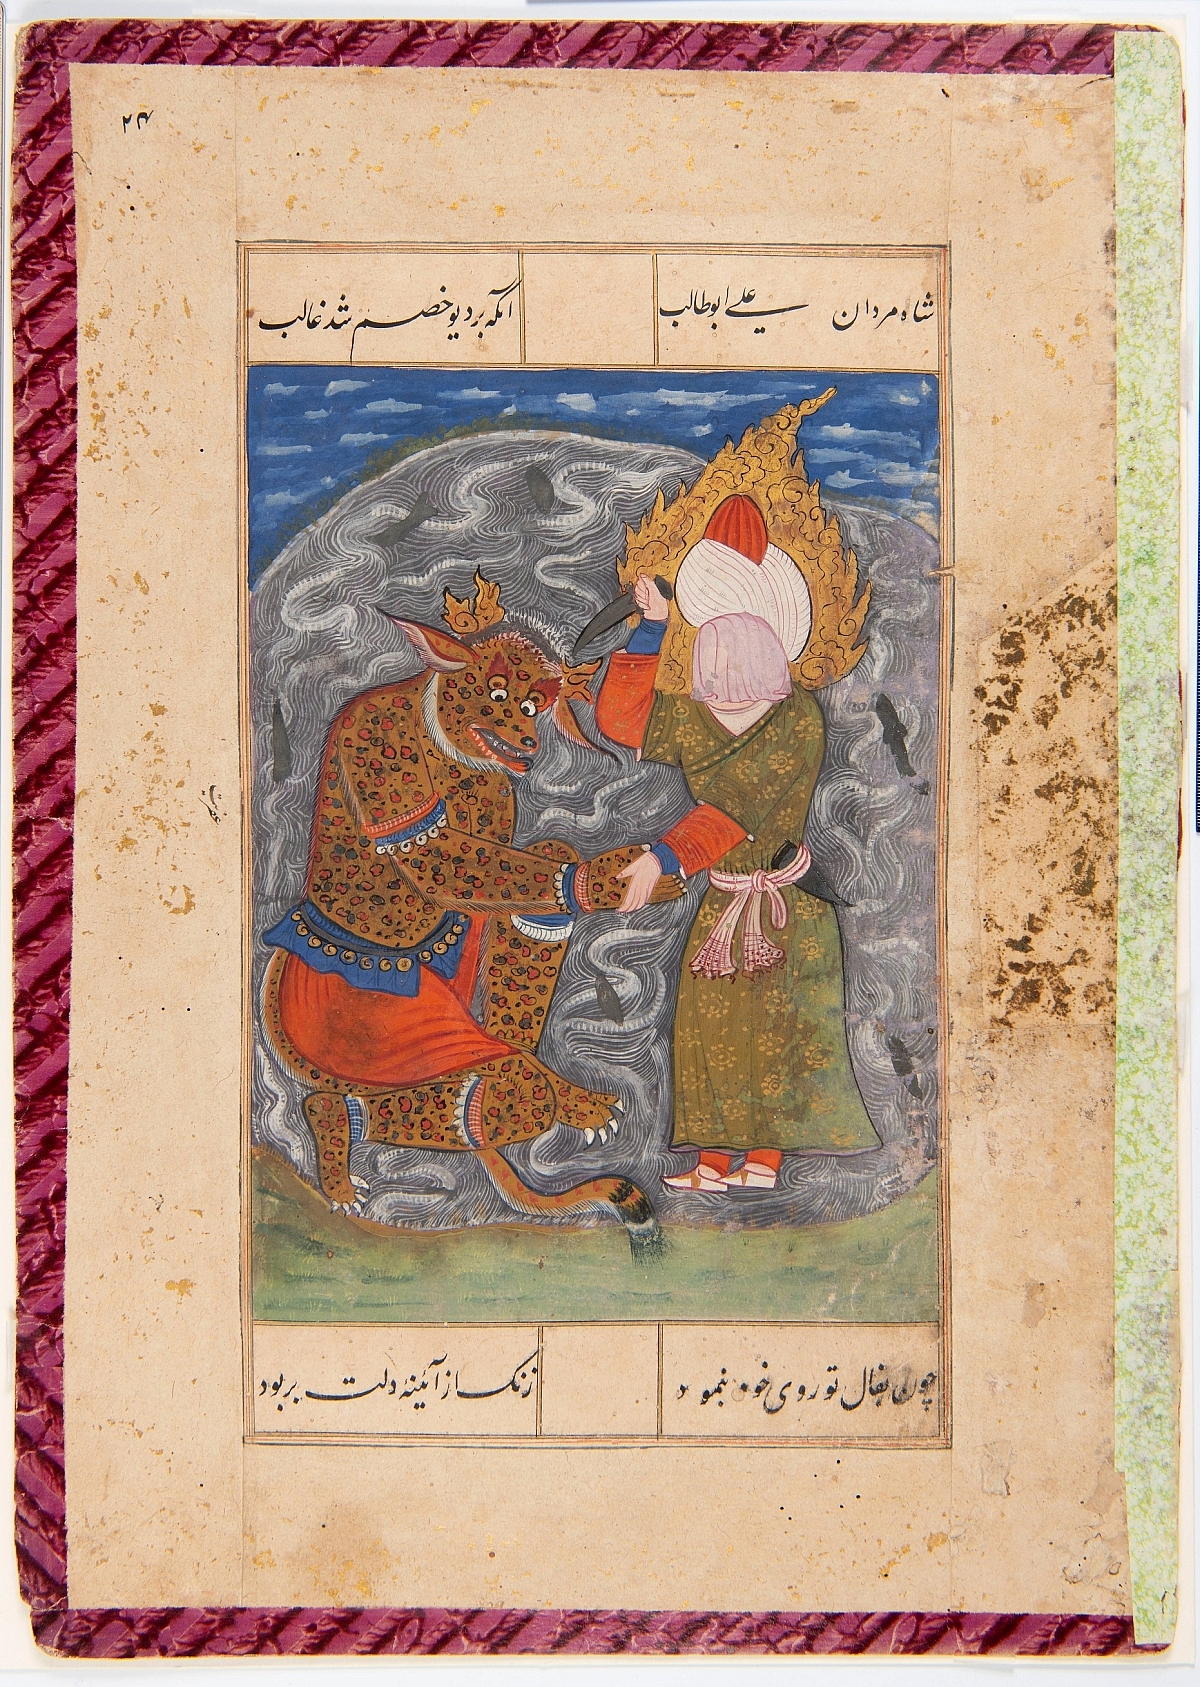 ۲۴
شاه مردان علی ابوطالب
انکه بر دیو خصم شد غالب
چون بفال تو روی خود بنمود
زنک از آئینهٔ دلت بربود